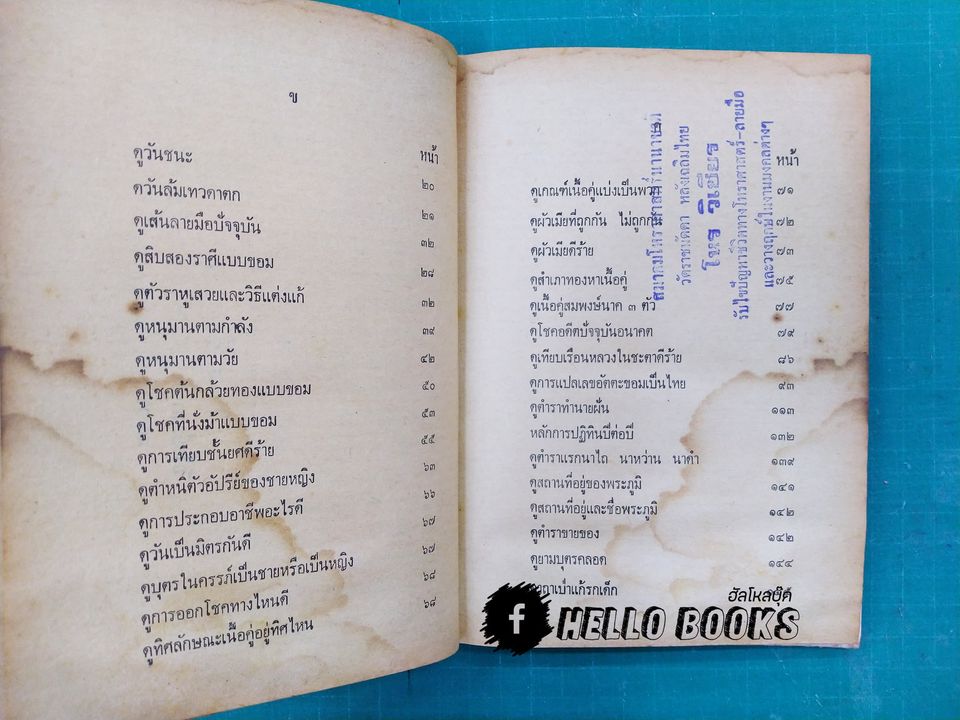 ข
หน้า
ดูวันชนะ ๒๐
ดวันล้มเทวดาตก ๒๑
ดูเส้นลายมือปัจจุบัน ๓๒
ดูสิบสองราศีแบบขอม ๒๘
ดูตัวราหูเสวยและวิธีแต่งแก้ ๓๒
ดูหนุมานตามกำลัง ๓๙
ดูหนุมานตามวัย ๔๒
ดูโชคต้นกล้วยทองแบบขอม ๕๐
ดูโชคที่นั่งม้าแบบขอม ๕๓
ดูการเทียบชั้นยศดีร้าย ๕๕
ดูตำหนิตัวอัปรีย์ของชายหญิง ๖๓
ดูการประกอบอาชีพอะไรดี ๖๖
ดูวันเป็นมิตรกันดี ๖๗
ดูบุตรในครรภ์เป็นชายหรือเป็นหญิง ๖๗
ดูการออกโชคทางไหนดี ๖๘
ดูทิศลักษณะเนื้อคู่อยู่ทิศไหน ๖๘
หน้า
ดูเกณฑ์เนื้อคู่แบ่งเป็นพวก ๗๑
ดูผัวเมียที่ถูกกัน ไม่ถูกกัน ๗๒
ดูผัวเมียดีร้าย ๗๓
ดูสำเภาทองหาเนื้อคู่ ๗๕
ดูเนื้อคู่สมพงษ์นาค ๓ ตัว ๗๗
ดูโชคอดีตปัจจุบันอนาคต ๗๙
ดูเทียบเรือนหลวงในชะตาดีร้าย ๘๖
ดูการแปลเลขอัตตะขอมเป็นไทย ๙๓
ดูตำราทำนายฝัน ๑๑๓
หลักการปฏิทินปีต่อปี ๑๓๒
ดูตำราแรกนาไถ นาหว่าน นาดำ ๑๓๙
ดูสถานที่อยู่ของพระภูมิ ๑๔๑
ดูสถานที่อยู่และชื่อพระภูมิ ๑๔๒
ดูตำราขายของ ๑๔๒
ดูยามบุตรคลอด ๑๔๔
เป่าแก้รกเด็ก
สมาคมโหราศาสตร์นานาชาติ
วัดราชนัดดา หลังเฉลิมไทย
โหร วิเชียร
รับไขปัญหาชีวิตทางโหราศาสตร์-ลายมือ
และวางฤกษ์ในงานมงคลต่างๆ
ฮัลโหลบุ๊ค
f HELLO BOOKS